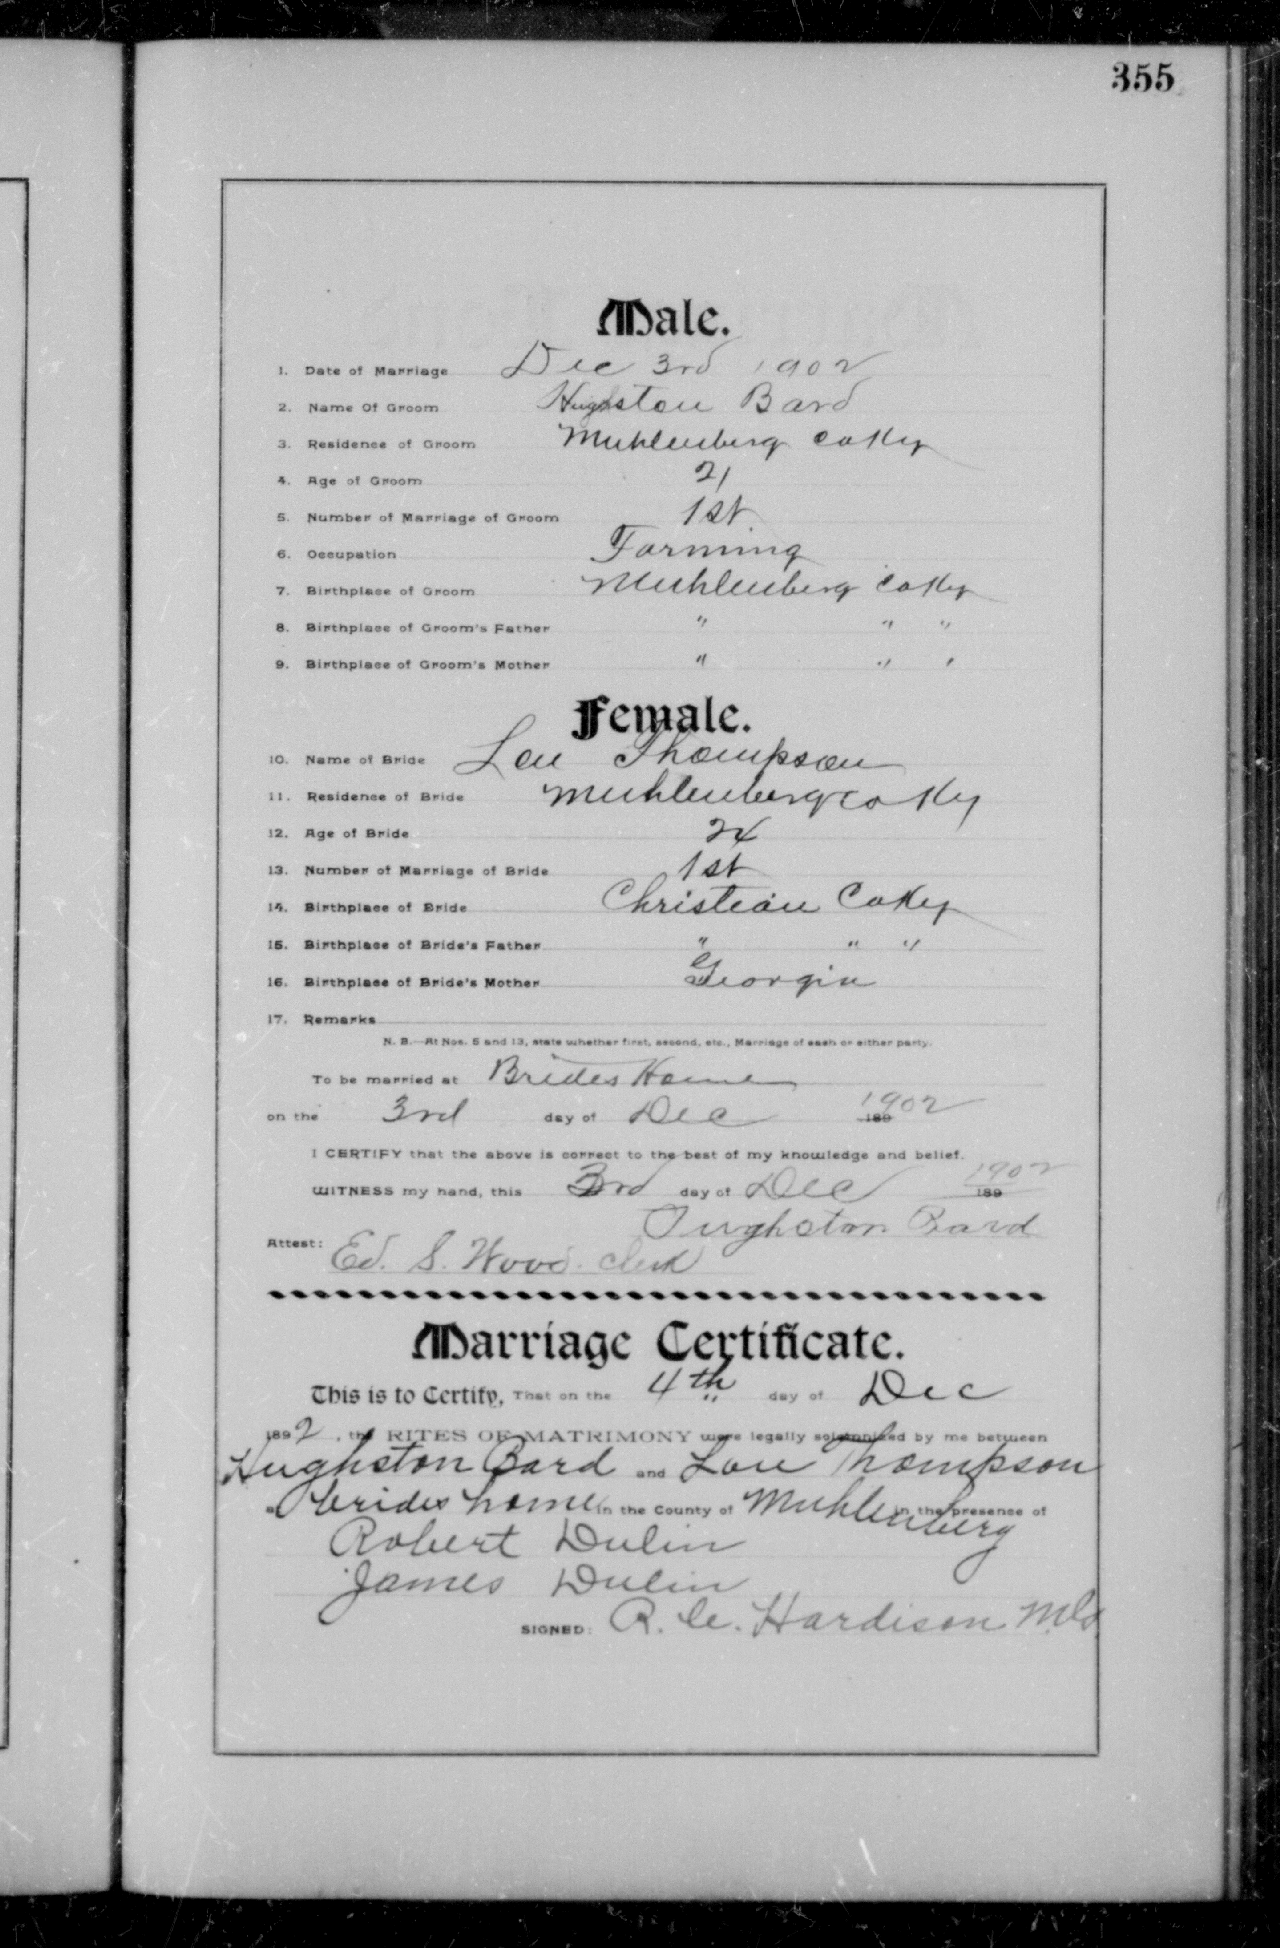 355
Male.
1. Date of Marriage Dec 3rd 1902
2. Name Of Groom Hughston Bard
3. Residence of Groom Muhlenberg Co Ky
4. Age of Groom 21
5. Number of Marriage of Groom 1st
6. Occupation Farming
7. Birthplace of Groom Muhlenberg Co Ky
8. Birthplace of Groom's Father " " "
9. Birthplace of Groom's Mother " " "
Female.
10. Name of Bride Lou Thompson
11. Residence of Bride Muhlenberg Co Ky
12. Age of Bride 24
13. Number of Marriage of Bride 1st
14. Birthplace of Bride Christian Co Ky
15. Birthplace of Bride's Father " " "
16. Birthplace of Bride's Mother Georgia
17. Remarks
N. B.—At Nos. 5 and 13, state whether first, second, etc., Marriage of each or either party.
To be married at Brides Home
on the 3rd day of Dec 189 1902
I CERTIFY that the above is correct to the best of my knowledge and belief.
WITNESS my hand, this 3rd day of Dec 189 1902
Hughston Bard
Attest: Ed. S. Wood. Clerk
Marriage Certificate.
This is to Certify, That on the 4th day of Dec
1892, the RITES OF MATRIMONY were legally solemnized by me between
Hughston Bard and Lou Thompson
at brides home in the County of Muhlenberg in the presence of
Robert Dulin
James Dulin
SIGNED: R. C. Hardison